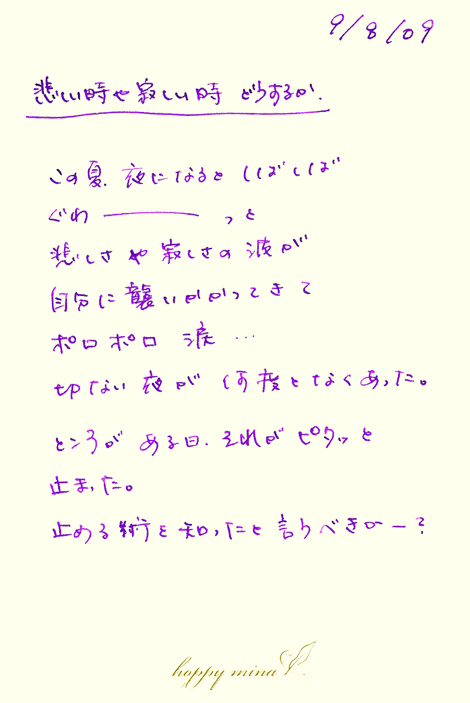 9/8/09
悲しい時や寂しい時 どうするか.
この夏、夜になると しばしば
ぐわ――――っと
悲しさや寂しさの波が
自分に襲いかかってきて
ポロポロ 涙…
切ない夜が 何度となくあった。
ところが ある日、それが ピタッと
止まった。
止める術を知ったと言うべきかー?
happy mina